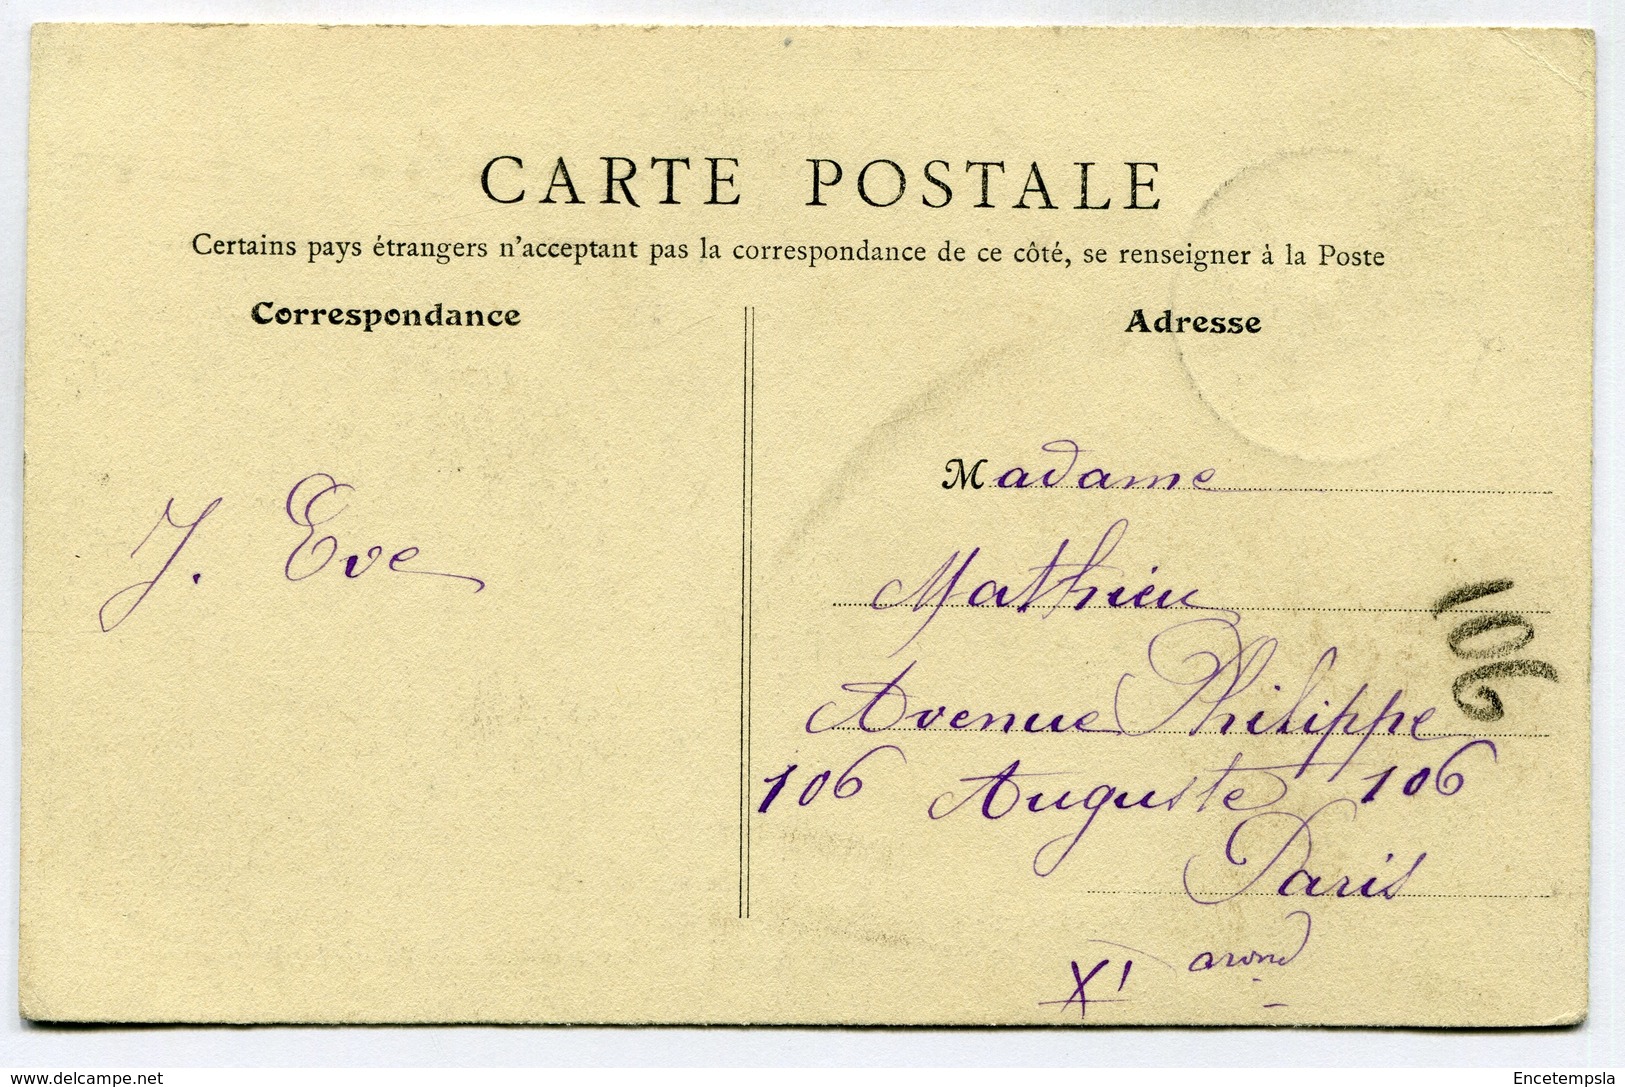 CARTE POSTALE
Certains pays étrangers n'acceptant pas la correspondance de ce côté, se renseigner à la Poste
Correspondance
Adresse
J. Eve
Madame
Mathieu
Avenue Philippe
106 Auguste 106
Paris
XI arond
106
www.delcampe.net
Encetempsla